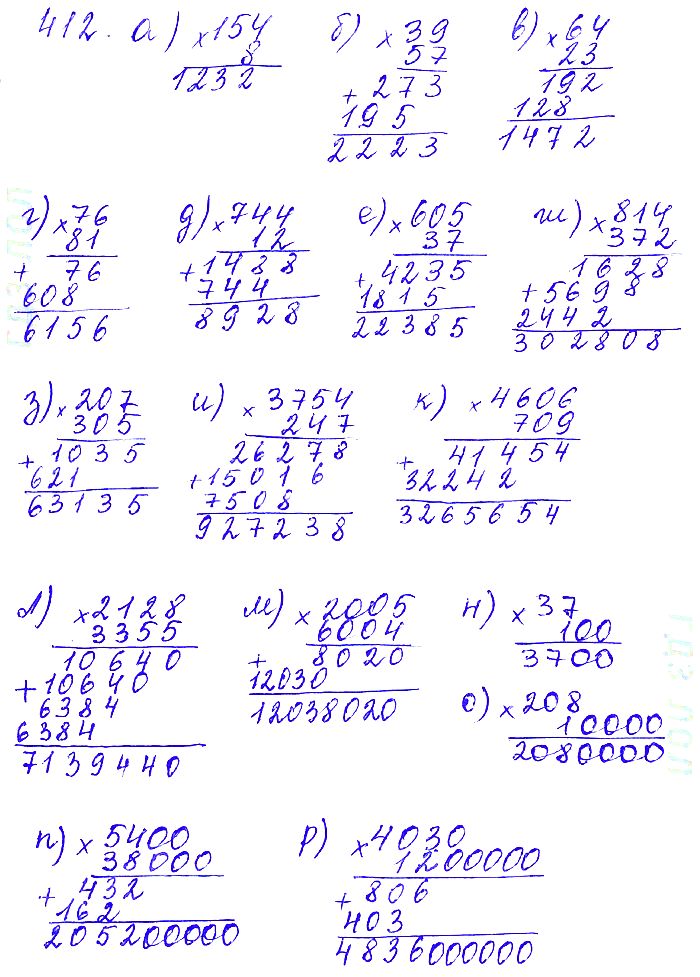 412. а) ×154 б) ×39 в) ×64
8 57 23
1232 +273 192
195 128
2223 1472
г) ×76 д) ×744 е) ×605 ж) ×814
81 12 37 372
+76 +1488 +4235 1628
608 744 1815 +5698
6156 8928 22385 2442
302808
з) ×207 и) ×3754 к) ×4606
305 247 709
+1035 26278 +41454
621 +15016 32242
63135 7508 3265654
927238
л) ×2128 м) ×2005 н) ×37
3355 6004 100
10640 +8020 3700
+10640 12030
6384 12038020 о) ×208
6384 10000
7139440 2080000
п) ×5400 р) ×4030
38000 1200000
+432 +806
162 403
205200000 4836000000